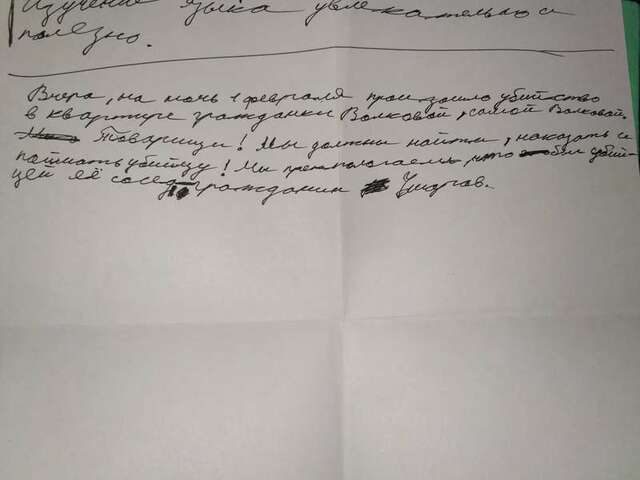 Изучение языка увлекательно и
полезно.
Вчера, на ночь 1 февраля произошло убийство
в квартире гражданки Волковой, самой Волковой.
Товарищи! Мы должны найти, наказать и
поймать убийцу! Мы предпологаем, что был убий-
цей её сосед гражданин